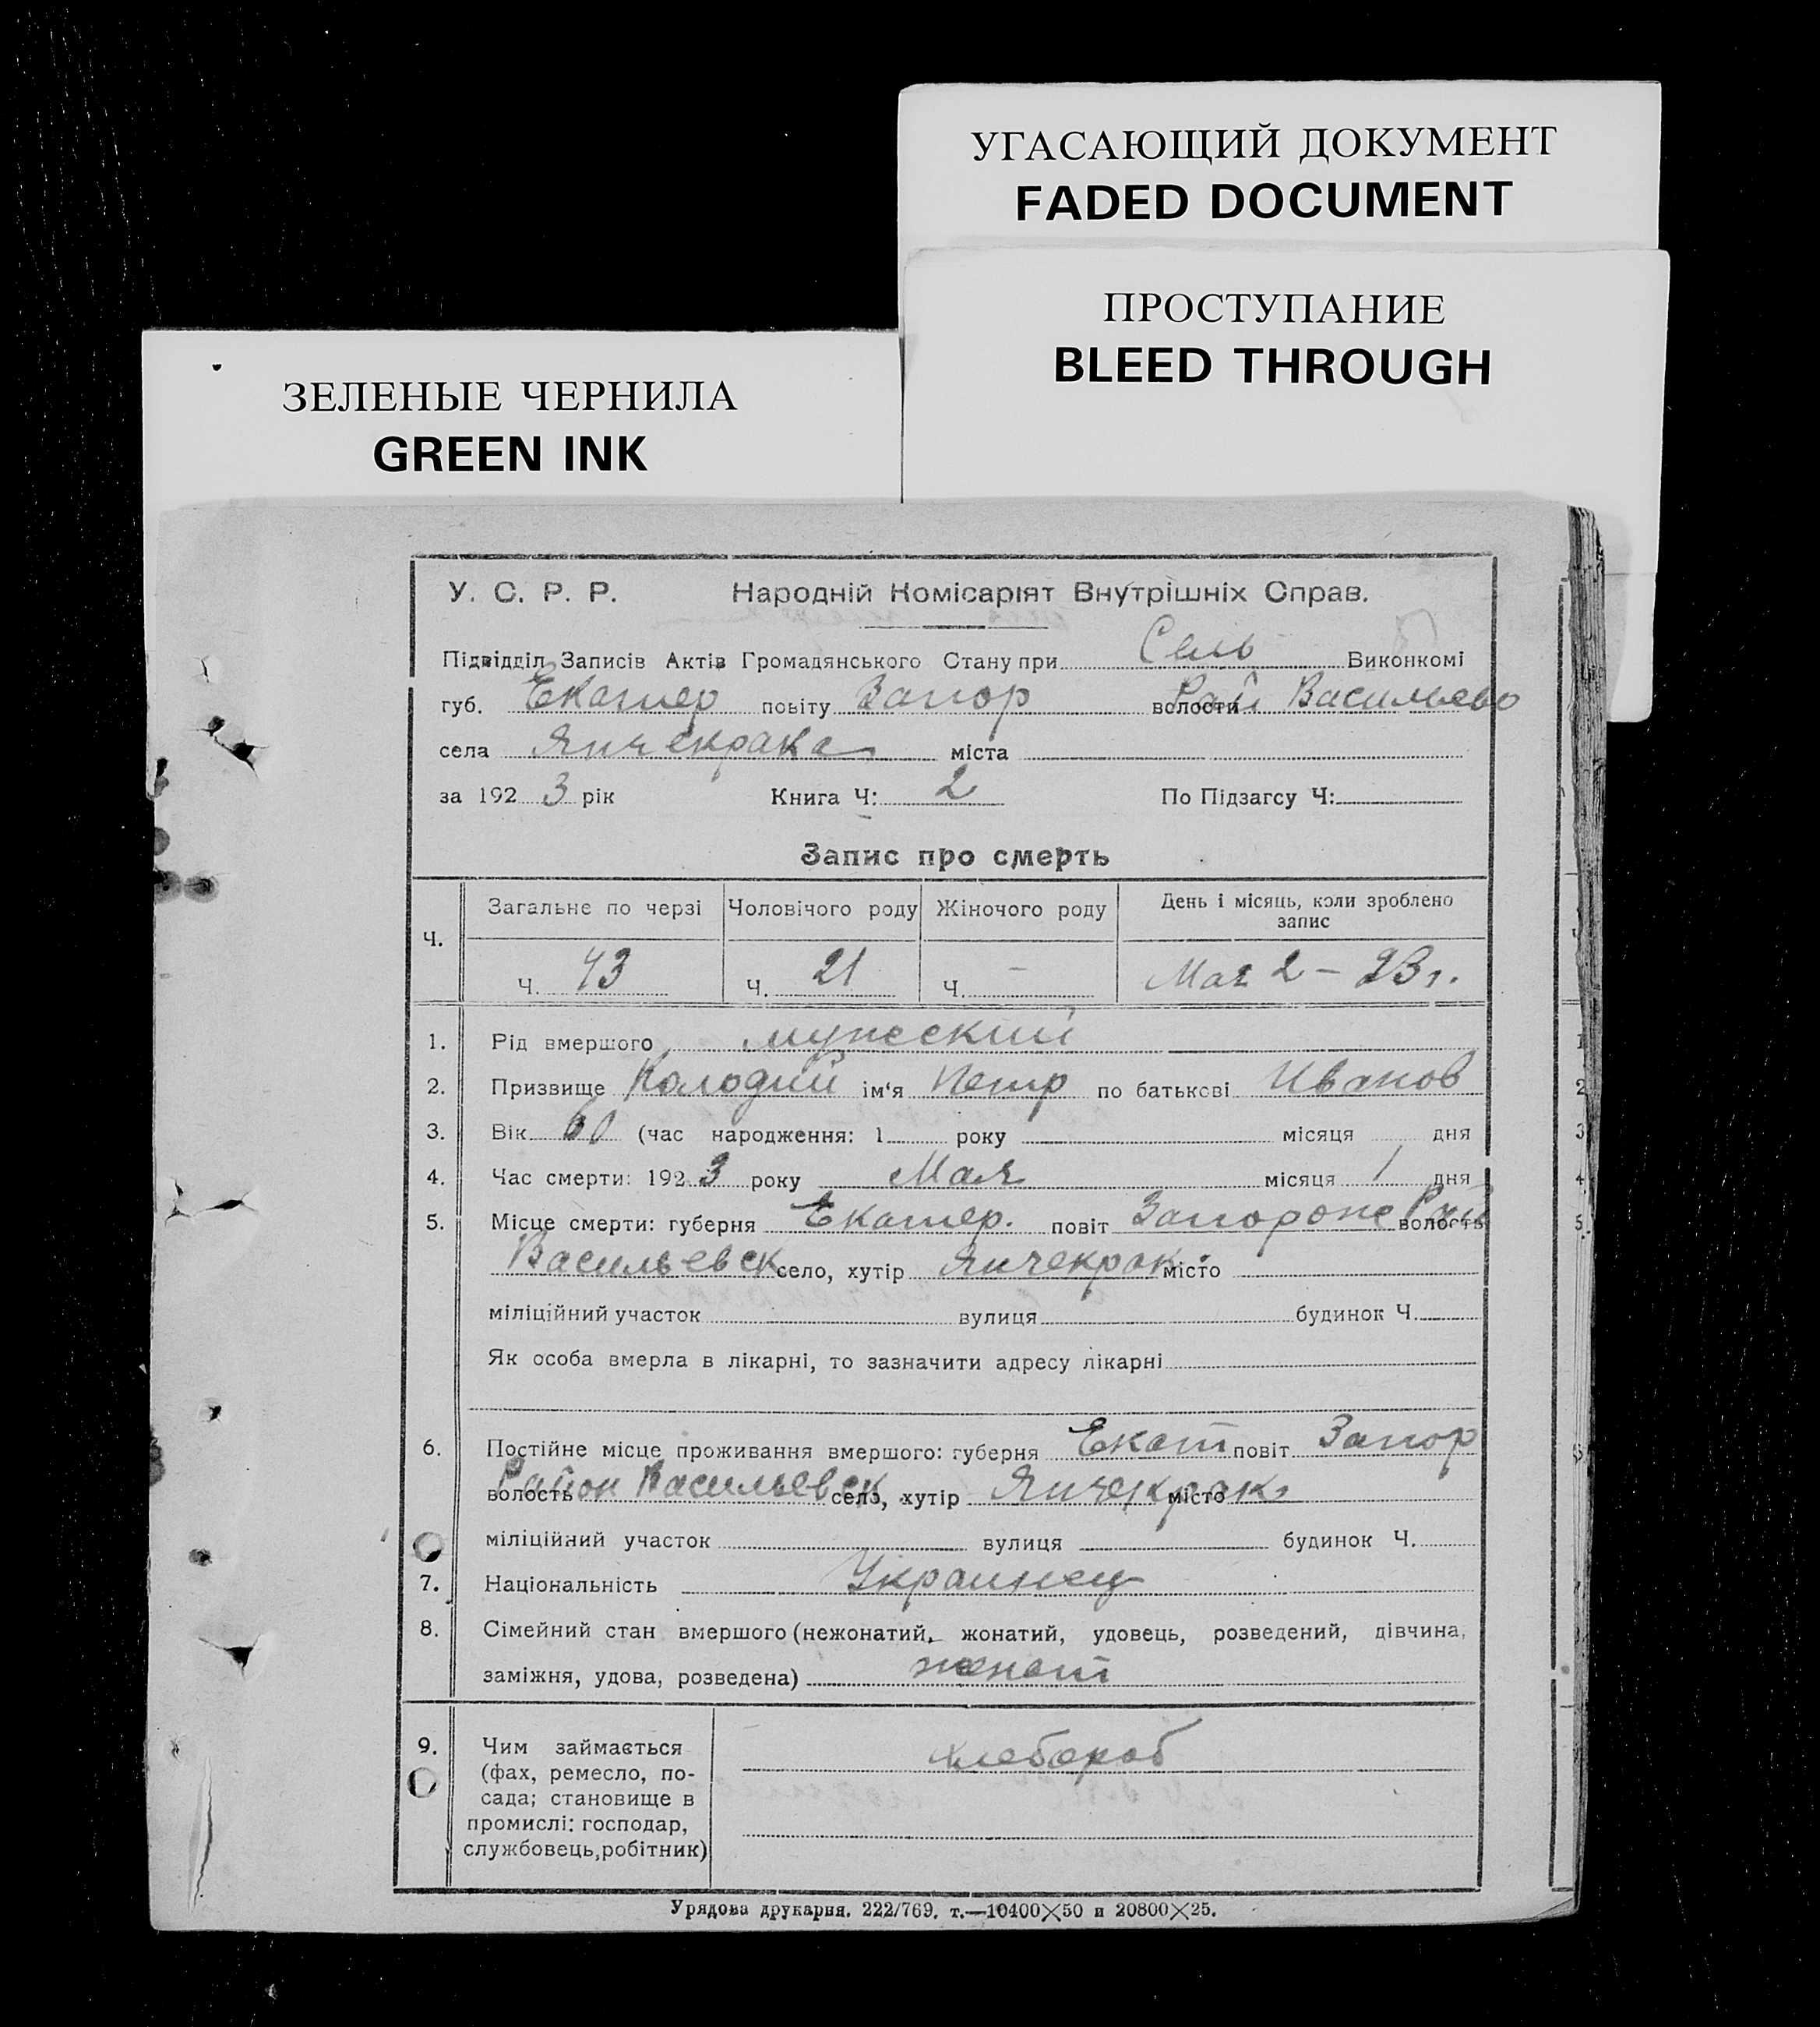 УГАСАЮЩИЙ ДОКУМЕНТ
FADED DOCUMENT
ПРОСТУПАНИЕ
BLEED THROUGH
ЗЕЛЕНЫЕ ЧЕРНИЛА
GREEN INK
У. С. Р. Р. Народній Комісаріят Внутрішніх Справ.
Підвідділ Записів Актів Громадянського Стану при Сель Виконкомі
губ. Екатер повіту Запор волости Рай Васильево
села Янчекрака міста
за 1923 рік Книга Ч: 2 По Підзагсу Ч:
Запис про смерть
Ч. Загальне по черзі Чоловічого роду Жіночого роду День і місяць, коли зроблено запис
Ч. 43 Ч. 21 Ч. – Мая 2 – 23 г.
1. Рід вмершого мужеский
2. Призвище Колодий ім‘я Петр по батькові Иванов
3. Вік 60 (час народження: 1 року місяця дня
4. Час смерти: 1923 року Мая місяця 1 дня
5. Місце смерти: губерня Екатер. повіт Запорож Рай волость
Васильевск село, хутір Янчекрак місто
міліційний участок вулиця будинок Ч.
Як особа вмерла в лікарні, то зазначити адресу лікарні
6. Постійне місце проживання вмершого: губерня Екат повіт Запор
волость Район Васильевск село, хутір Янчекрак місто
міліційний участок вулиця будинок Ч.
7. Національність Украинец
8. Сімейний стан вмершого (нежонатий, жонатий, удовець, розведений, дівчина,
заміжня, удова, розведена) женат
9. Чим займається хлебороб
(фах, ремесло, по-
сада; становище в
промислі: господар,
службовець, робітник)
Урядова друкарня. 222/769. т.—10400×50 и 20800×25.